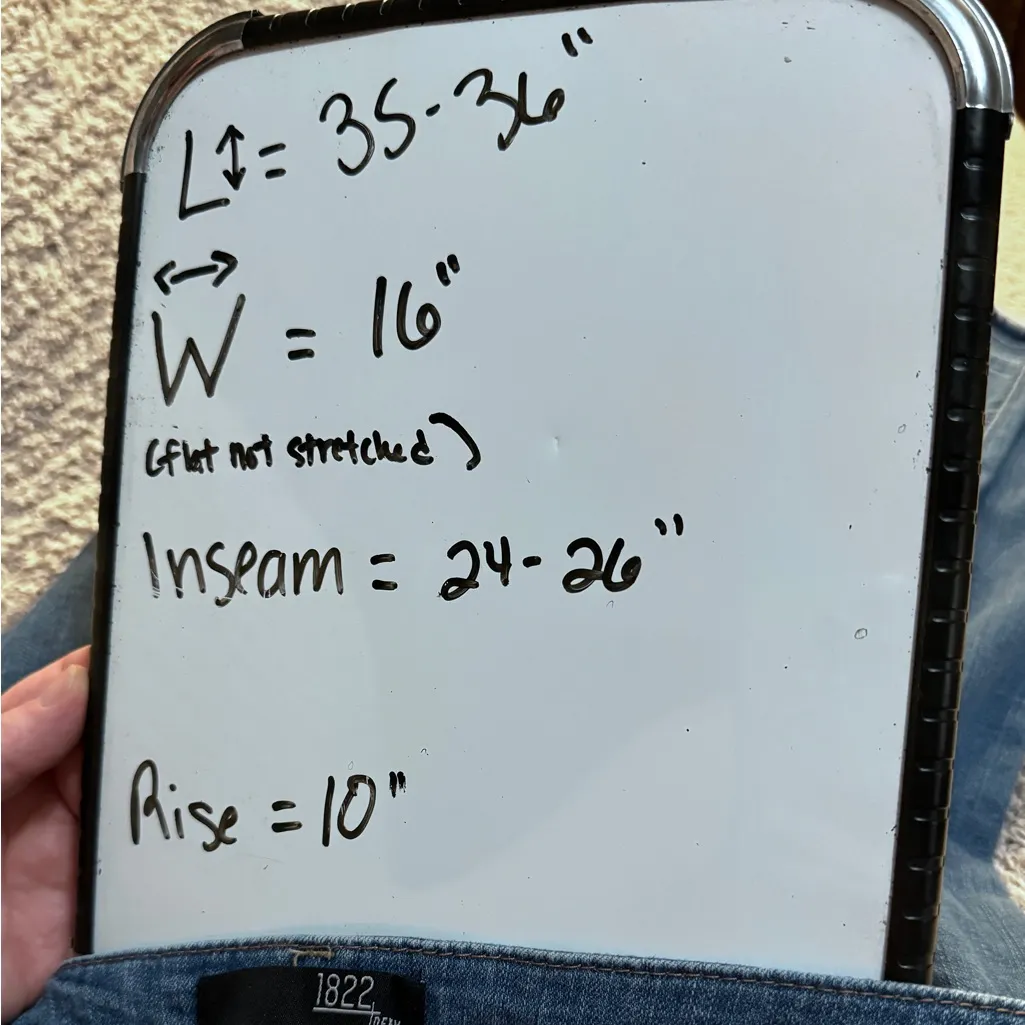 L↕ = 35-36"
↔
W = 16"
(flat not stretched)
Inseam = 24-26"
Rise = 10"
1822